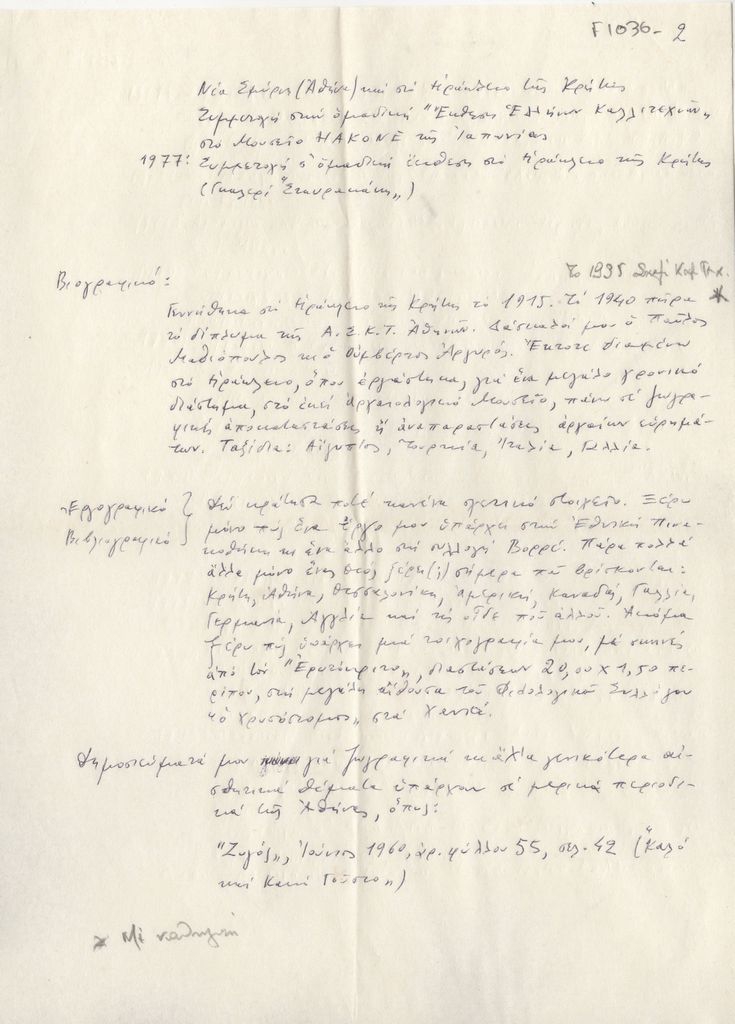 Γ1036- 2
Νέα Σμύρνη (Ἀθήνα) καί στό Ἡράκλειο τῆς Κρήτης
Συμμετοχή στήν ὁμαδική "Ἔκθεση Ἑλλήνων Καλλιτεχνῶν
στό Μουσεῖο HAKONE τῆς Ἰαπωνίας
1977: Συμμετοχή σ' ὁμαδική ἔκθεση στό Ἡράκλειο τῆς Κρήτης
(Γκαλερί "Σταυρακάκη„)
Τό 1935
Βιογραφικό:
Γεννήθηκα στό Ἡράκλειο τῆς Κρήτης τό 1915. Τό 1940 πῆρα *
τό δίπλωμα τῆς Α.Σ.Κ.Τ. Ἀθηνῶν. Δάσκαλοί μου ὁ Παῦλος
Μαθιόπουλος κι ὁ Οὐμβέρτος Ἀργυρός. Ἔκτοτε διαμένω
στό Ἡράκλειο, ὅπου ἐργάστηκα, γιά ἕνα μεγάλο χρονικό
διάστημα, στό ἐκεῖ Ἀρχαιολογικό Μουσεῖο, πάνω σέ ζωγρα-
φικές ἀποκαταστάσεις ἤ ἀναπαραστάσεις ἀρχαίων εὑρημά-
των. Ταξίδια: Αἴγυπτος, Τουρκία, Ἰταλία, Γαλλία.
Ἐργογραφικό }
Βιβλιογραφικό
Δέν κράτησα ποτέ κανένα σχετικό στοιχεῖο. Ξέρω
μόνο πώς ἕνα ἔργο μου ὑπάρχει στήν Ἐθνική Πινα-
κοθήκη κι ἕνα ἄλλο στή συλλογή Βορρέ. Πάρα πολλά
ἄλλα μόνο ἕνας Θεός ξέρει(;) σήμερα ποῦ βρίσκονται:
Κρήτη, Ἀθήνα, Θεσσαλονίκη, Ἀμερική, Καναδᾶ, Γαλλία,
Γερμανία, Ἀγγλία καί τίς οἶδε ποῦ ἀλλοῦ. Ἀκόμα
ξέρω πώς ὑπάρχει μιά τοιχογραφία μου, μέ σκηνές
ἀπό τόν "Ἐρωτόκριτο„, διαστάσεων 20,00 Χ 1,50 πε-
ρίπου, στή μεγάλη αἴθουσα τοῦ Φιλολογικοῦ Συλλόγου
"ὁ Χρυσόστομος„ στά Χανιά.
Δημοσιεύματά μου γιά ζωγραφικά κι ἄλλα γενικότερα αἰ-
σθητικά θέματα ὑπάρχουν σέ μερικά περιοδι-
κά τῆς Ἀθήνας, ὅπως:
"Ζυγός„, Ἰούνιος 1960, ἀρ. φύλλου 55, σελ. 42 ("Καλό
καί Κακό Γοῦστο„)
* Μέ καθηγητή